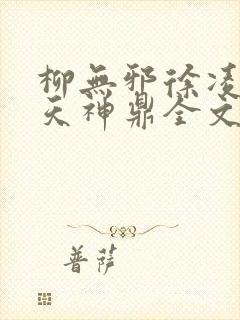 柳無邪徐凌
天神鼎全文
普薩